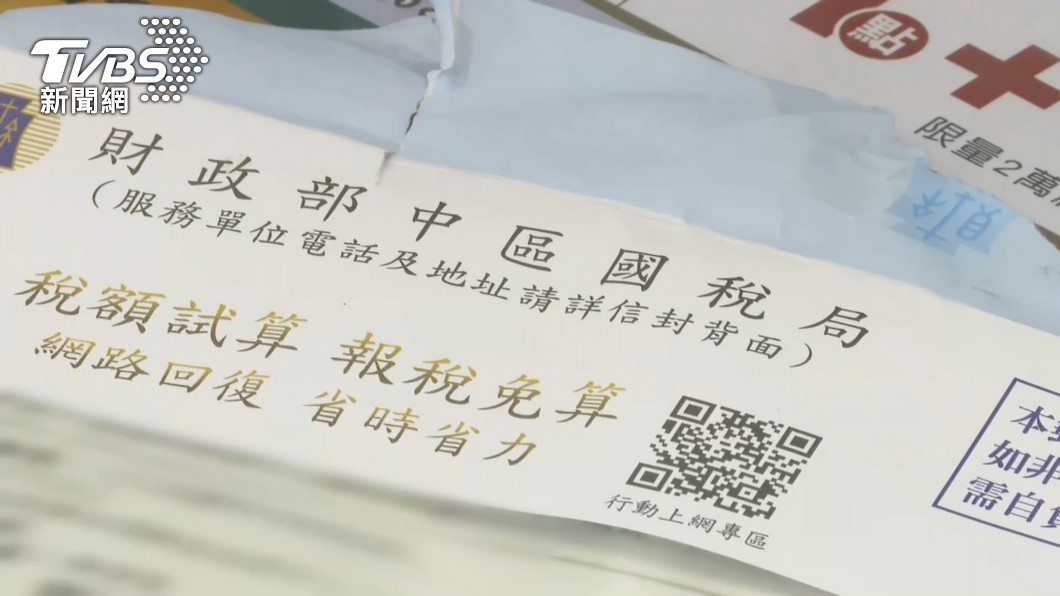 TVBS
新聞網
限量2萬
財政部中區國稅局
(服務單位電話及地址請詳信封背面)
稅額試算 報稅免算
網路回復 省時省力
行動上網專區
本
如非
需自